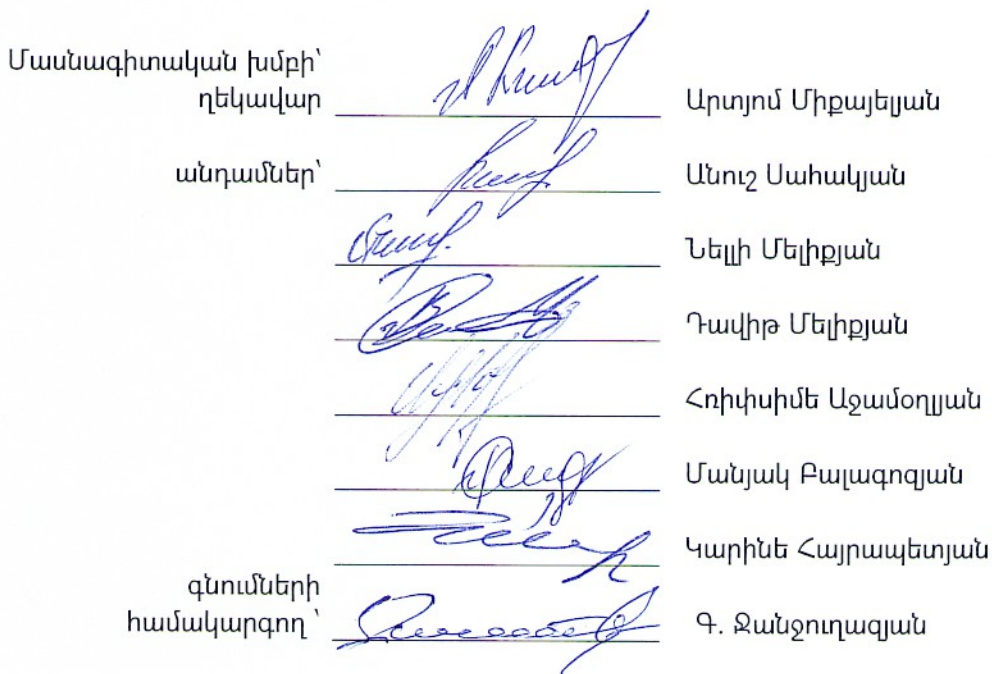 Մասնագիտական խմբի՝
ղեկավար Արտյոմ Միքայելյան
անդամներ՝ Անուշ Սահակյան
Նելլի Մելիքյան
Դավիթ Մելիքյան
Հռիփսիմե Աջամօղլյան
Մանյակ Բալագոզյան
Կարինե Հայրապետյան
գնումների
համակարգող՝ Գ. Ջանջուղազյան